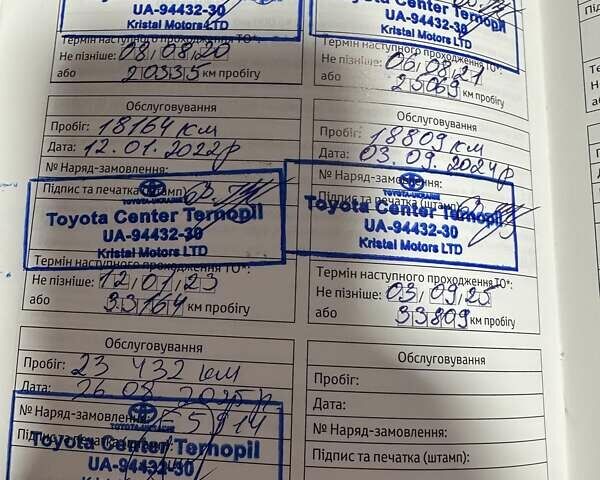 UA-94432-30
Kristal Motors LTD
Термін наступного проходження ТО*:
Не пізніше: 08,08,20
або 20335 км пробігу
Toyota Center Ternopil
UA-94432-30
Kristal Motors LTD
Термін наступного проходження ТО*:
Не пізніше: 06,08,21
або 25069 км пробігу
Обслуговування
Пробіг: 18164 км
Дата: 12.01.2022р
№ Наряд-замовлення:
Підпис та печатка (штамп):
TOYOTA-UKRAINE
Toyota Center Ternopil
UA-94432-30
Kristal Motors LTD
Термін наступного проходження ТО*:
Не пізніше: 12,01,23
або 33164 км пробігу
Обслуговування
Пробіг: 18809 км
Дата: 03.09.2024р
№ Наряд-замовлення:
Підпис та печатка (штамп):
TOYOTA-UKRAINE
Toyota Center Ternopil
UA-94432-30
Kristal Motors LTD
Термін наступного проходження ТО*:
Не пізніше: 03,09,25
або 33809 км пробігу
Обслуговування
Пробіг: 23 432 км
Дата: 26.08.2025р.
№ Наряд-замовлення:
Підпис та печатка
Toyota Center Ternopil
UA-94432-30
Обслуговування
Пробіг:
Дата:
№ Наряд-замовлення:
Підпис та печатка (штамп):